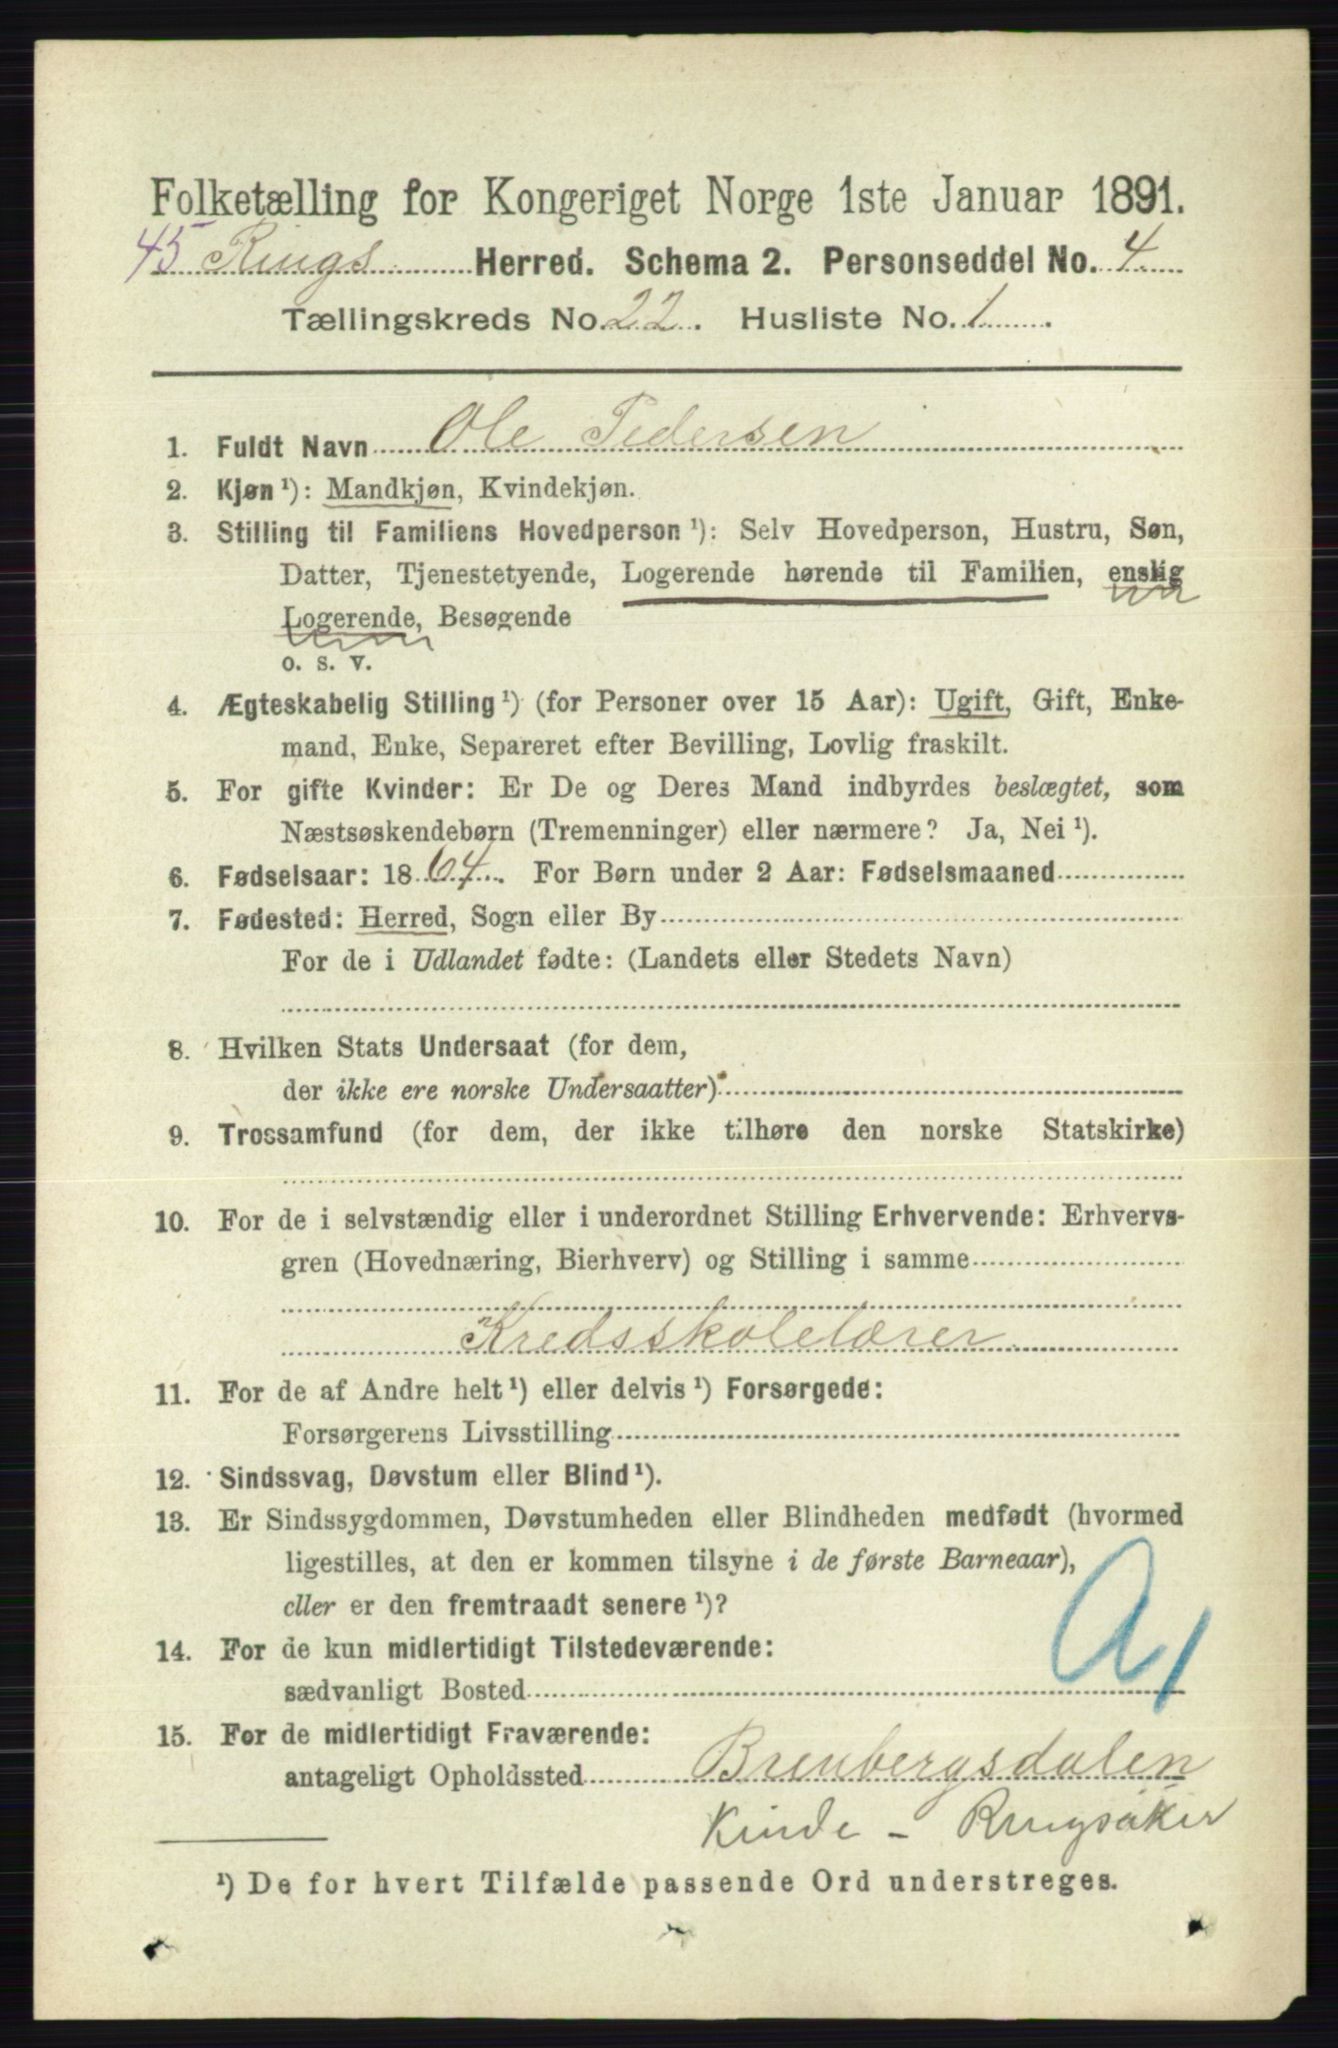 Folketælling for Kongeriget Norge 1ste Januar 1891.
45 Rings Herred. Schema 2. Personseddel No. 4
Tællingskreds No. 22. Husliste No. 1
1. Fuldt Navn Ole Pedersen
2. Kjøn ¹): Mandkjøn, Kvindekjøn.
3. Stilling til Familiens Hovedperson ¹): Selv Hovedperson, Hustru, Søn,
Datter, Tjenestetyende, Logerende hørende til Familien, enslig
Logerende, Besøgende
o. s. v.
4. Ægteskabelig Stilling ¹) (for Personer over 15 Aar): Ugift, Gift, Enke-
mand, Enke, Separeret efter Bevilling, Lovlig fraskilt.
5. For gifte Kvinder: Er De og Deres Mand indbyrdes beslægtet, som
Næstsøskendebørn (Tremenninger) eller nærmere? Ja, Nei ¹).
6. Fødselsaar: 1864. For Børn under 2 Aar: Fødselsmaaned
7. Fødested: Herred, Sogn eller By
For de i Udlandet fødte: (Landets eller Stedets Navn)
8. Hvilken Stats Undersaat (for dem,
der ikke ere norske Undersaatter)
9. Trossamfund (for dem, der ikke tilhøre den norske Statskirke)
10. For de i selvstændig eller i underordnet Stilling Erhvervende: Erhvervs-
gren (Hovednæring, Bierhverv) og Stilling i samme
Kredsskolelærer
11. For de af Andre helt ¹) eller delvis ¹) Forsørgede:
Forsørgerens Livsstilling
12. Sindssvag, Døvstum eller Blind ¹).
13. Er Sindssygdommen, Døvstumheden eller Blindheden medfødt (hvormed
ligestilles, at den er kommen tilsyne i de første Barneaar),
eller er den fremtraadt senere ¹)?
14. For de kun midlertidigt Tilstedeværende:
sædvanligt Bosted
15. For de midlertidigt Fraværende:
antageligt Opholdssted Brenbergsdalen
Kinde - Ringsaker
¹) De for hvert Tilfælde passende Ord understreges.